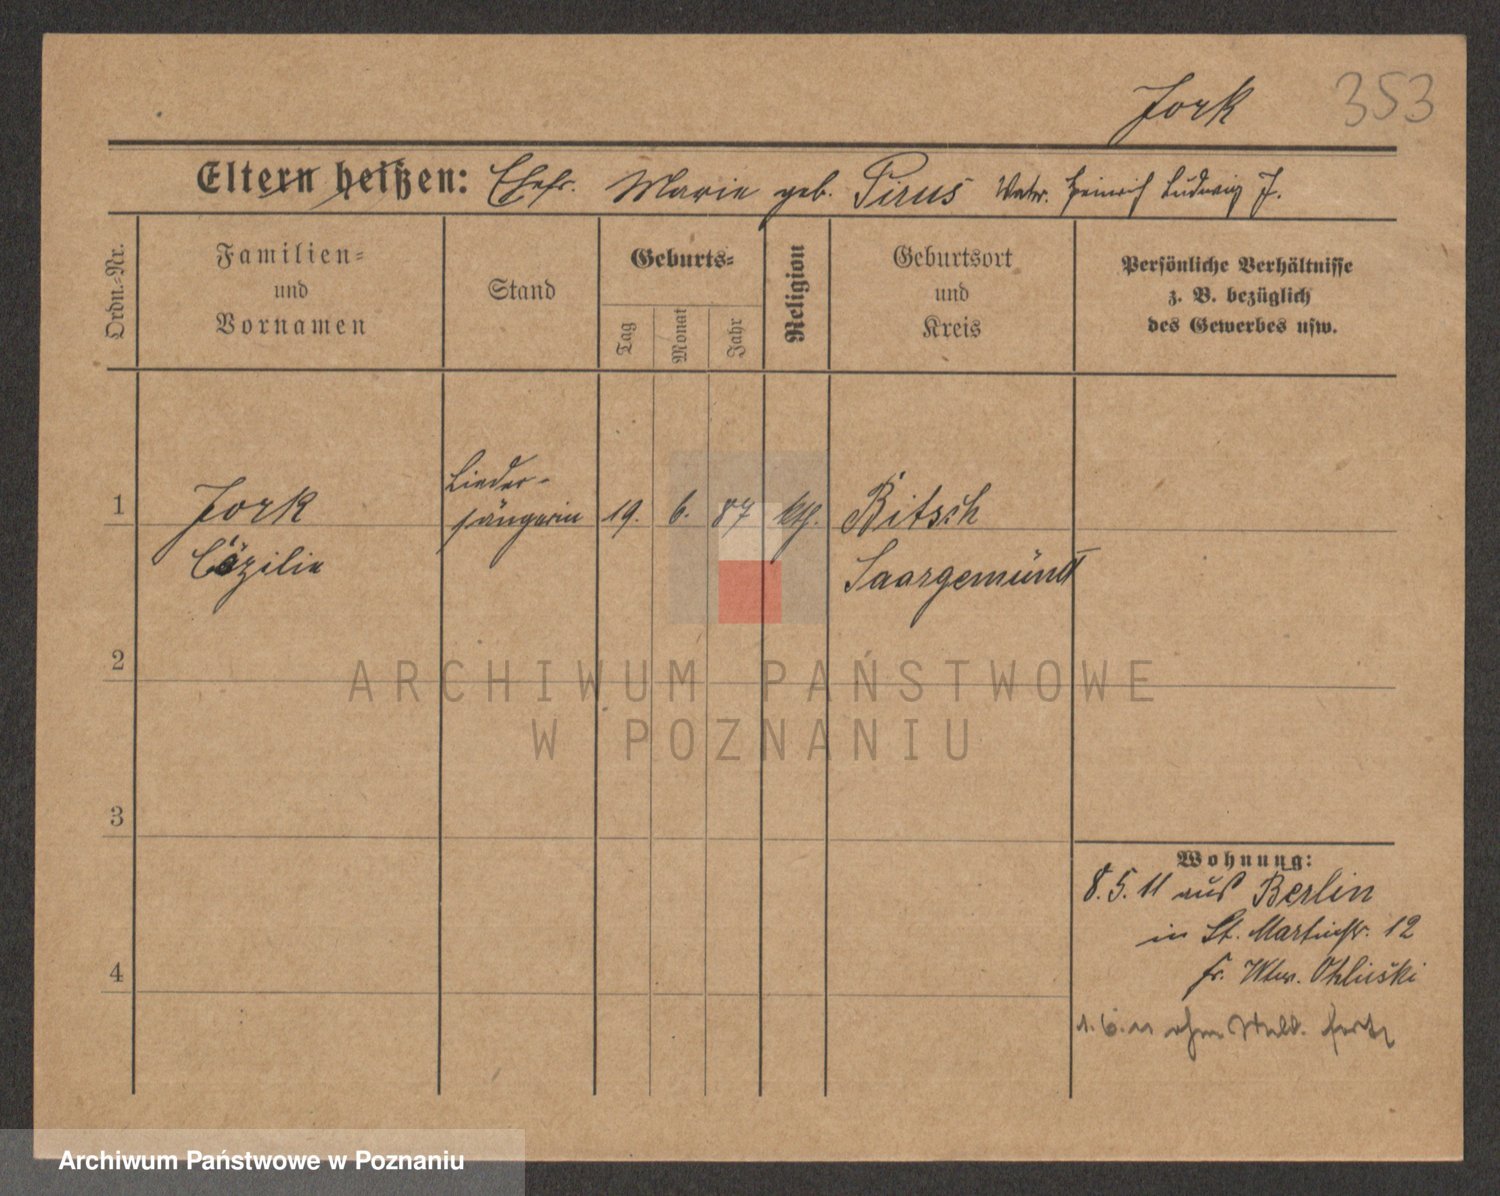 Jork 353
Eltern heißen: Ehefr. Marie geb. Pirus Vater. Heinrich Ludwig J.
Ordn.-Nr.
Familien-
und
Vornamen
Stand
Geburts-
Tag
Monat
Jahr
Religion
Geburtsort
und
Kreis
Persönliche Verhältnisse
z. B. bezüglich
des Gewerbes usw.
1 Jork Lieder- 19. 6. 87 kth. Bitsch
sängerin
Cäzilie Saargemünd
2
ARCHIWUM PAŃSTWOWE
W POZNANIU
3
Wohnung:
8.5.11 aus Berlin
in St. Martinstr. 12
4
fr. Wtw.
1.6.11 ohne
Archiwum Państwowe w Poznaniu